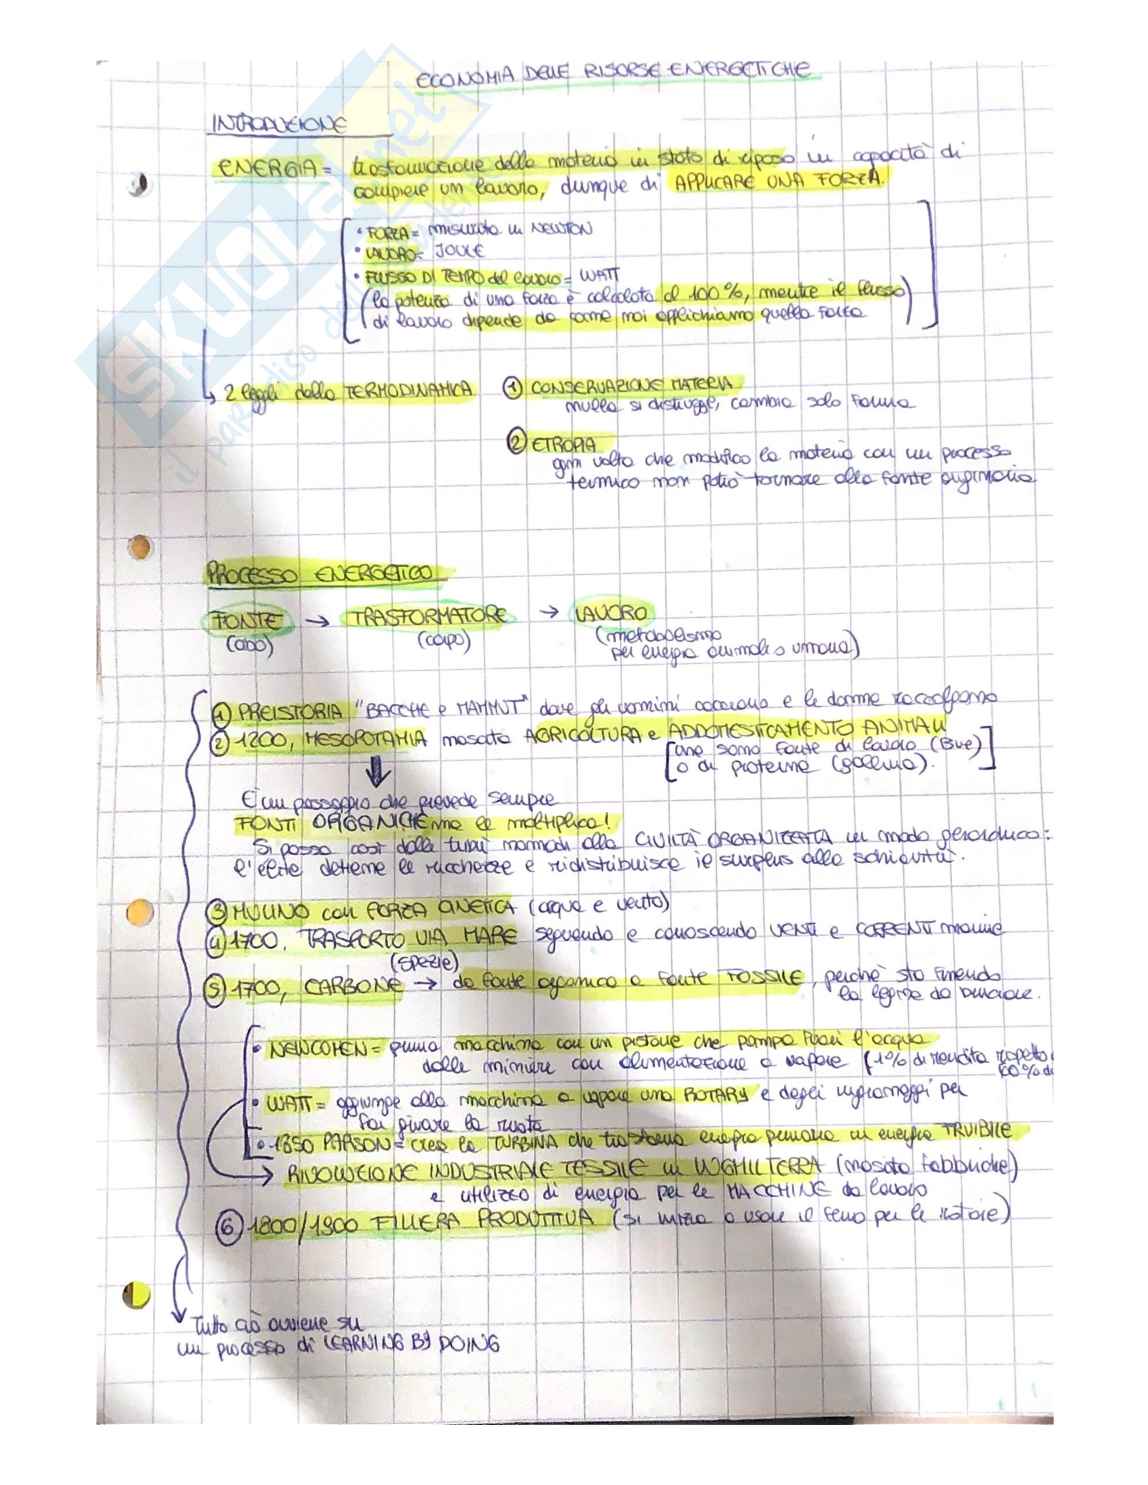 ECONOMIA DELLE RISORSE ENERGETICHE
INTRODUZIONE
ENERGIA = trasformazione della materia in stato di riposo in capacità di
compiere un lavoro, dunque di APPLICARE UNA FORZA.
• FORZA = misurata in NEWTON
• LAVORO = JOULE
• FLUSSO DI TEMPO del lavoro = WATT
(la potenza di una forza è calcolata al 100%, mentre il flusso
di lavoro dipende da come noi applichiamo quella forza)
2 leggi della TERMODINAMICA
① CONSERVAZIONE MATERIA
nulla si distrugge, cambia solo forma
② ETROPIA
ogni volta che modifico la materia con un processo
termico non potrò tornare alla fonte originaria
PROCESSO ENERGETICO
FONTE → TRASFORMATORE → LAVORO
(cibo) (corpo) (metabolismo
per energia animale o umana)
① PREISTORIA "BACCHE e MAMMUT" dove gli uomini cacciano e le donne raccolgono
② 1200, MESOPOTAMIA nascita AGRICOLTURA e ADDOMESTICAMENTO ANIMALI
[che sono fonte di lavoro (Bue)
o di proteine (gallina).]
È un passaggio che prevede sempre
FONTI ORGANICHE ma le moltiplica!
Si passa così dalle tribù nomadi alla CIVILTÀ ORGANIZZATA in modo gerarchico:
l'élite detiene le ricchezze e ridistribuisce il surplus alla schiavitù.
③ MULINO con FORZA CINETICA (acqua e vento)
④ 1700, TRASPORTO VIA MARE seguendo e conoscendo VENTI e CORRENTI marine
(SPEZIE)
⑤ 1700, CARBONE → da fonte organica a fonte FOSSILE, perchè sta finendo
la legna da bruciare.
• NEWCOMEN = prima macchina con un pistone che pompa fuori l'acqua
dalle miniere con alimentazione a vapore (1% di rendita rispetto
60% di
• WATT = aggiunge alla macchina a vapore una ROTARY e degli ingranaggi per
far girare la ruota
• 1850 PARSON = crea la TURBINA che trasforma energia primaria in energia FRUIBILE
→ RIVOLUZIONE INDUSTRIALE TESSILE in INGHILTERRA (nascita fabbriche)
e utilizzo di energia per le MACCHINE da lavoro
⑥ 1800/1900 FILIERA PRODUTTIVA (Si inizia a usare il ferro per le rotaie)
Tutto ciò avviene su
un processo di LEARNING BY DOING
SKUOLA.net